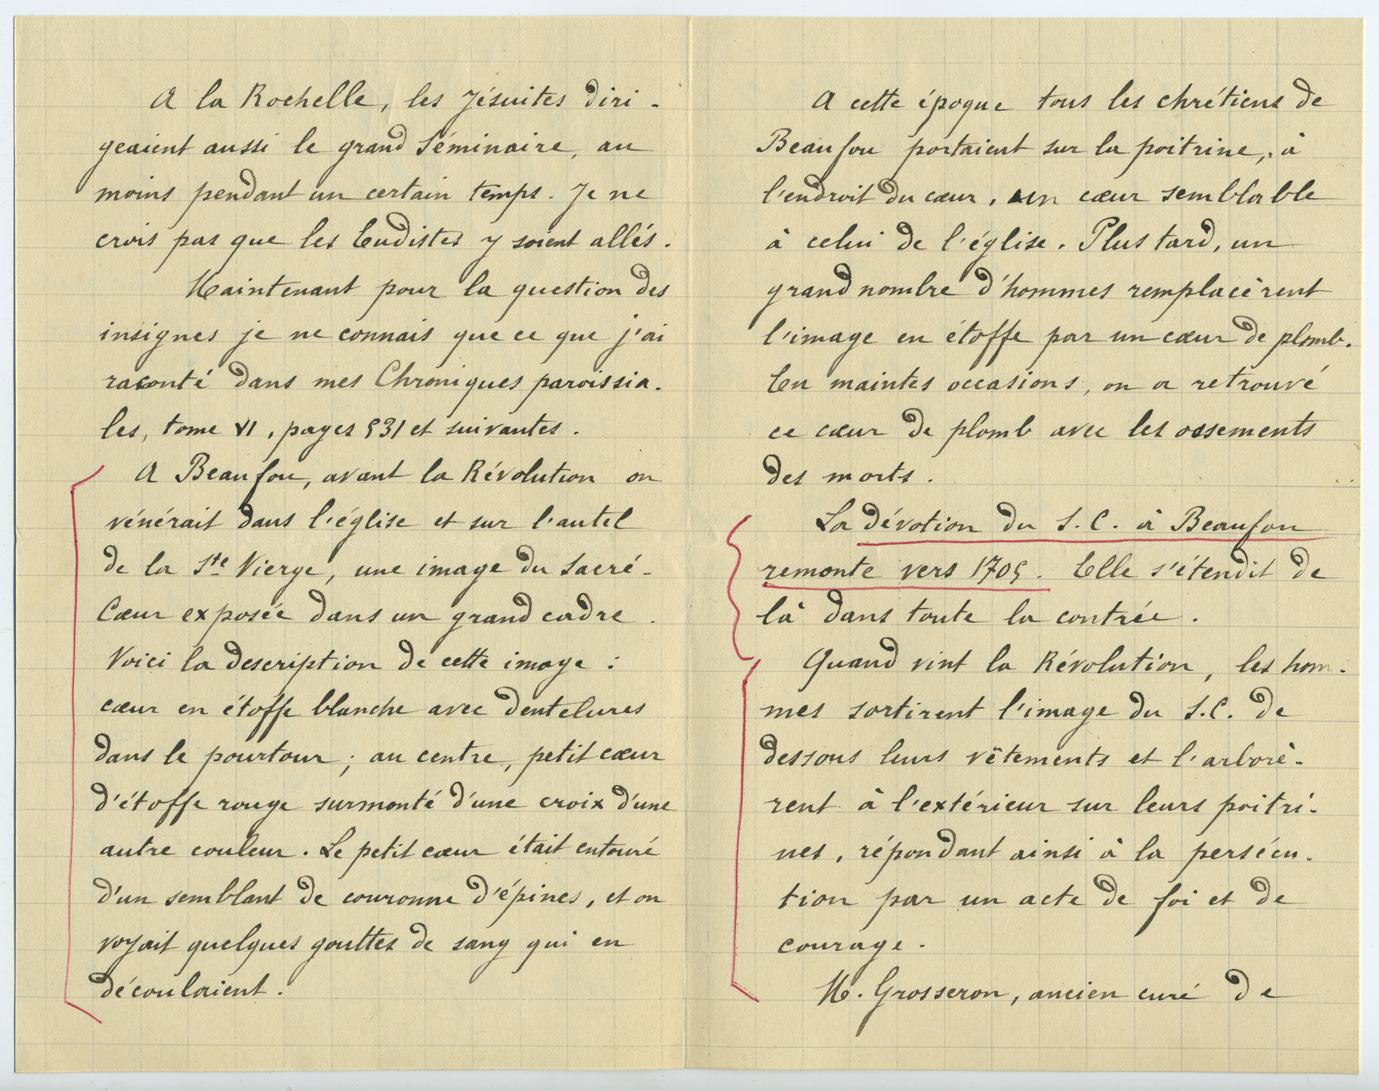 A la Rochelle, les Jésuites diri-
geaient aussi le grand Séminaire, au
moins pendant un certain temps. Je ne
crois pas que les Eudistes y soient allés.
Maintenant pour la question des
insignes je ne connais que ce que j'ai
raconté dans mes Chroniques paroissia-
les, tome VI, pages 531 et suivantes.
A Beaufou, avant la Révolution on
vénérait dans l'église et sur l'autel
de la Ste Vierge, une image du Sacré-
Cœur exposée dans un grand cadre.
Voici la description de cette image :
cœur en étoffe blanche avec dentelures
dans le pourtour ; au centre, petit cœur
d'étoffe rouge surmonté d'une croix d'une
autre couleur. Le petit cœur était entouré
d'un semblant de couronne d'épines, et on
voyait quelques gouttes de sang qui en
découlaient.
A cette époque tous les chrétiens de
Beaufou portaient sur la poitrine, à
l'endroit du cœur, un cœur semblable
à celui de l'église. Plus tard, un
grand nombre d'hommes remplacèrent
l'image en étoffe par un cœur de plomb.
En maintes occasions, on a retrouvé
ce cœur de plomb avec les ossements
des morts.
La dévotion du S.C. à Beaufou
remonte vers 1705. Elle s'étendit de
là dans toute la contrée.
Quand vint la Révolution, les hom-
mes sortirent l'image du S.C. de
dessous leurs vêtements et l'arborè-
rent à l'extérieur sur leurs poitri-
nes, répondant ainsi à la persécu-
tion par un acte de foi et de
courage.
M. Grosseron, ancien curé de